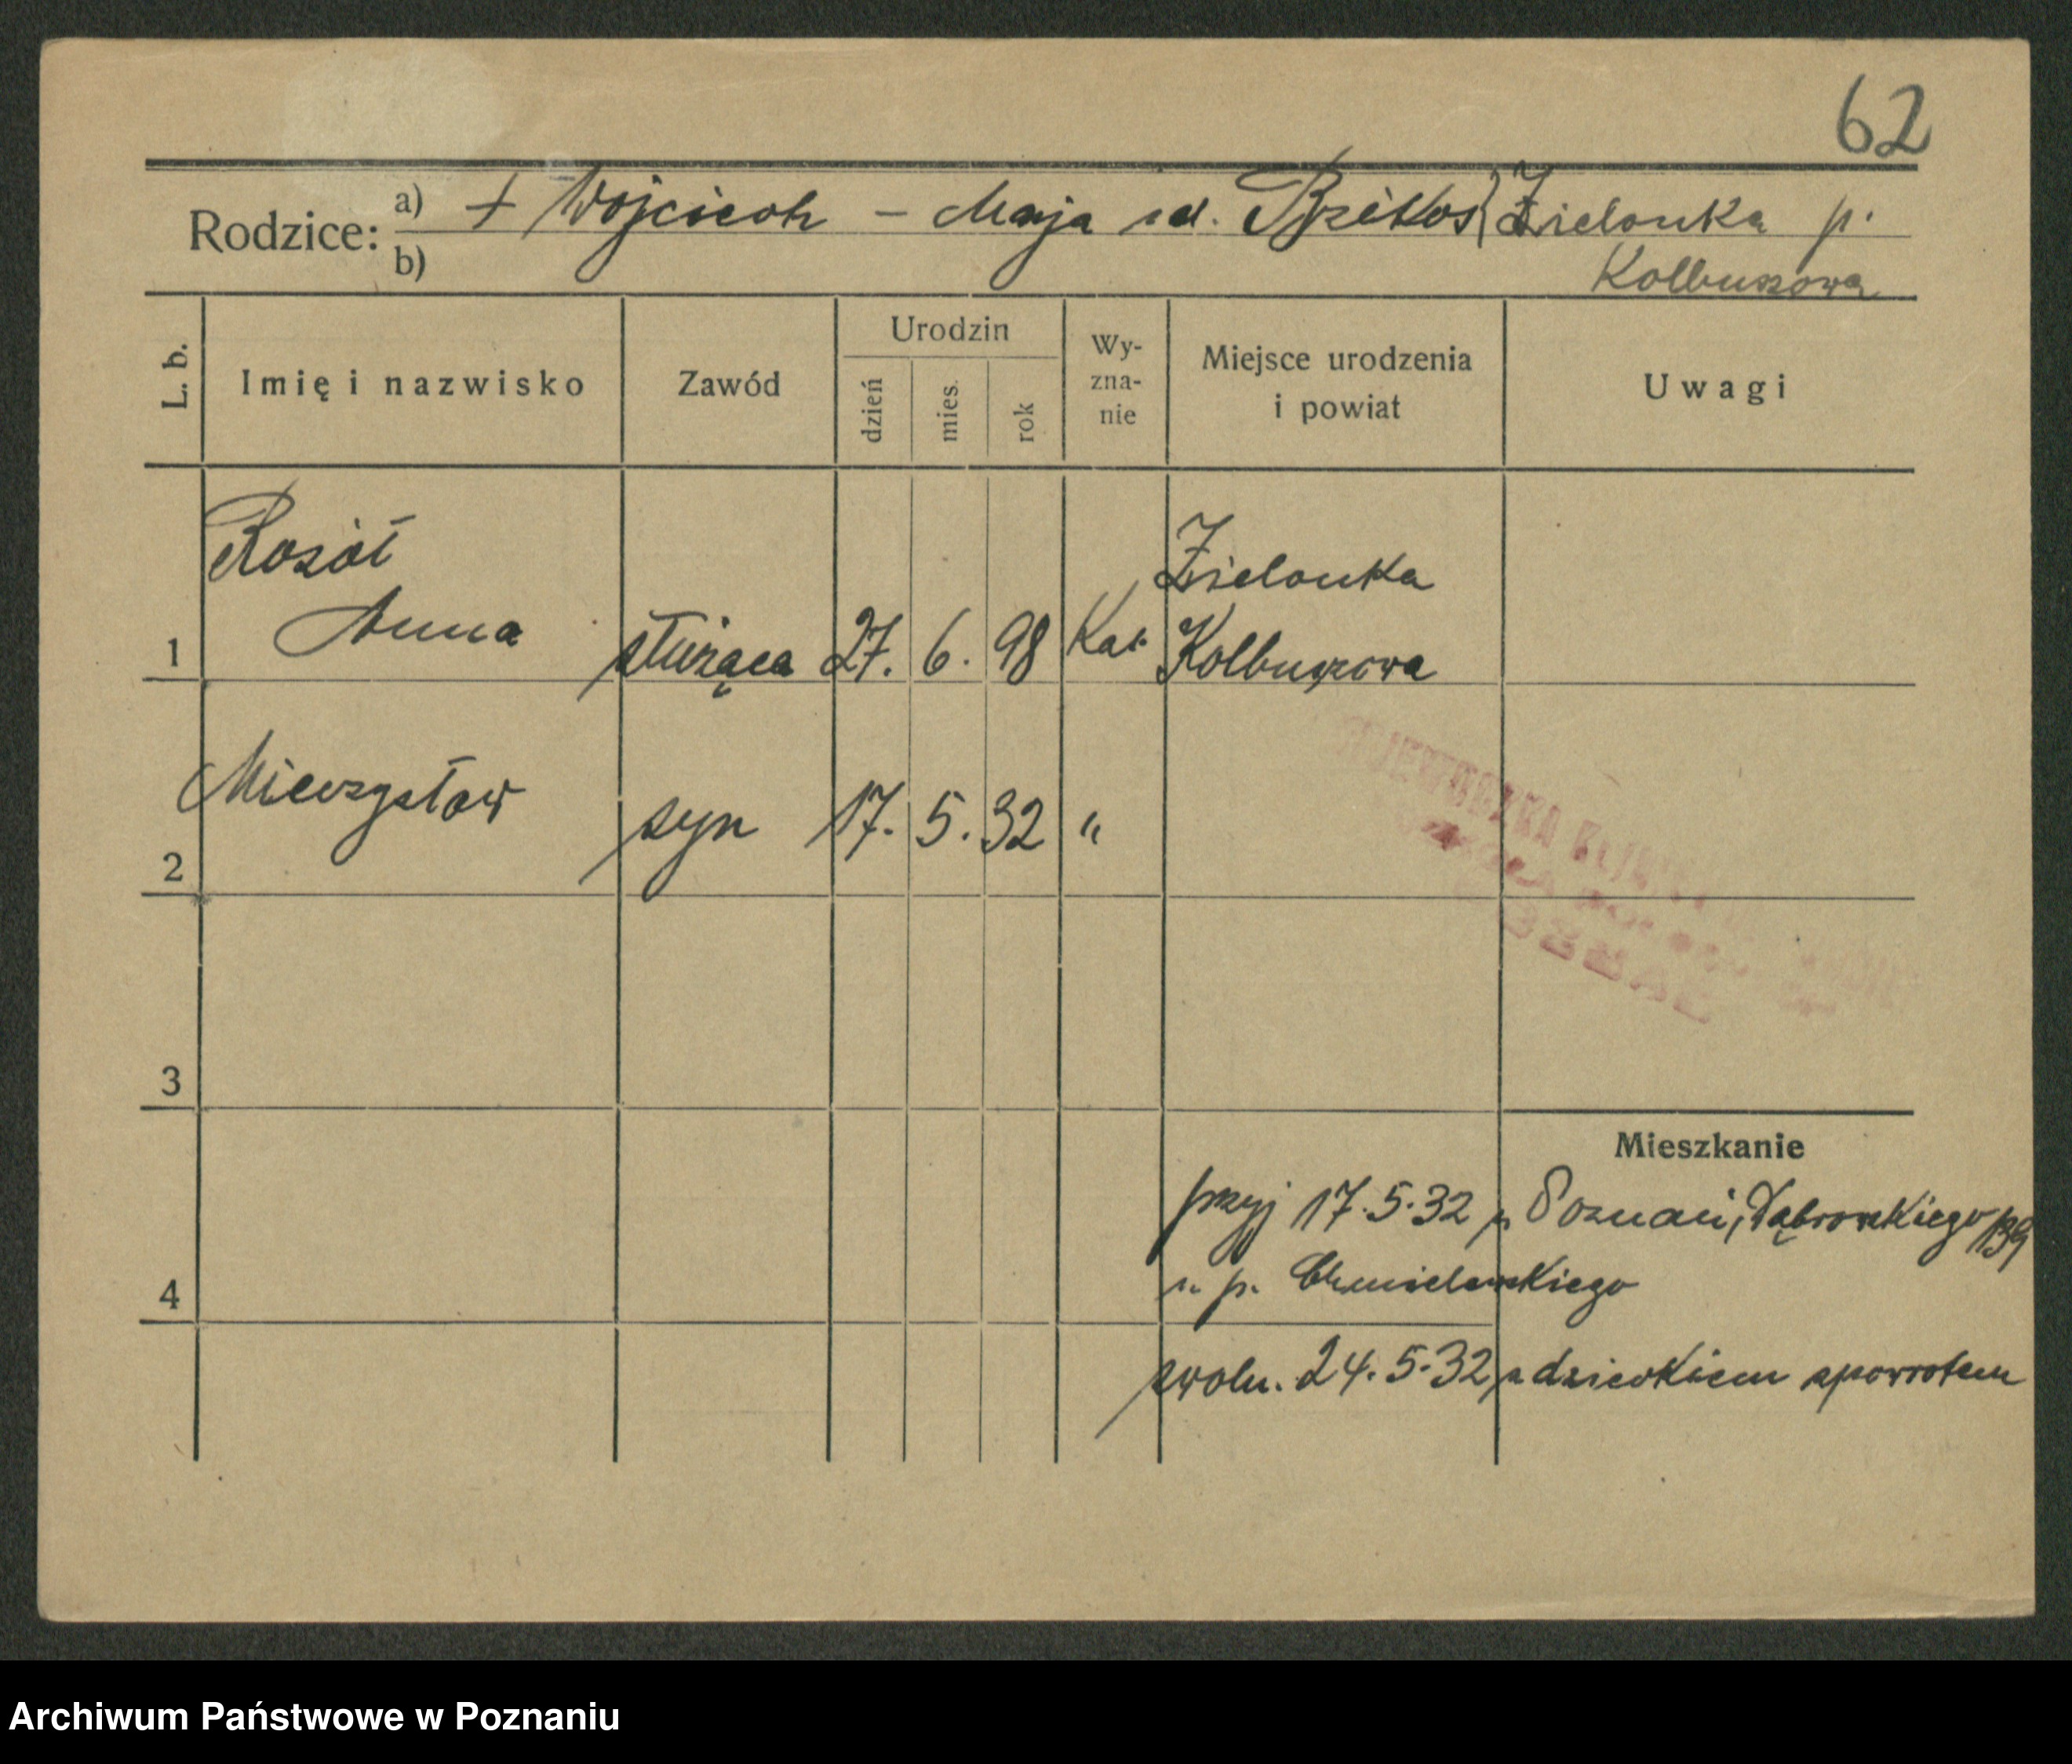 62
Rodzice: a) + Wojciech – Marja Zielonka p.
b) Kolbuszowa
L. b. Imię i nazwisko Zawód Urodzin dzień mies. rok Wy-zna-nie Miejsce urodzenia i powiat Uwagi
Rosół Zielonka
1 Anna służąca 27. 6. 98 Kat. Kolbuszowa
2 Mieczysław syn 17. 5. 32 "
3
Mieszkanie
przyj 17.5.32 Poznań, Dąbrowskiego 139
4 u p. Chmielewskiego
zwoln. 24.5.32 z dzieckiem spowrotem
Archiwum Państwowe w Poznaniu